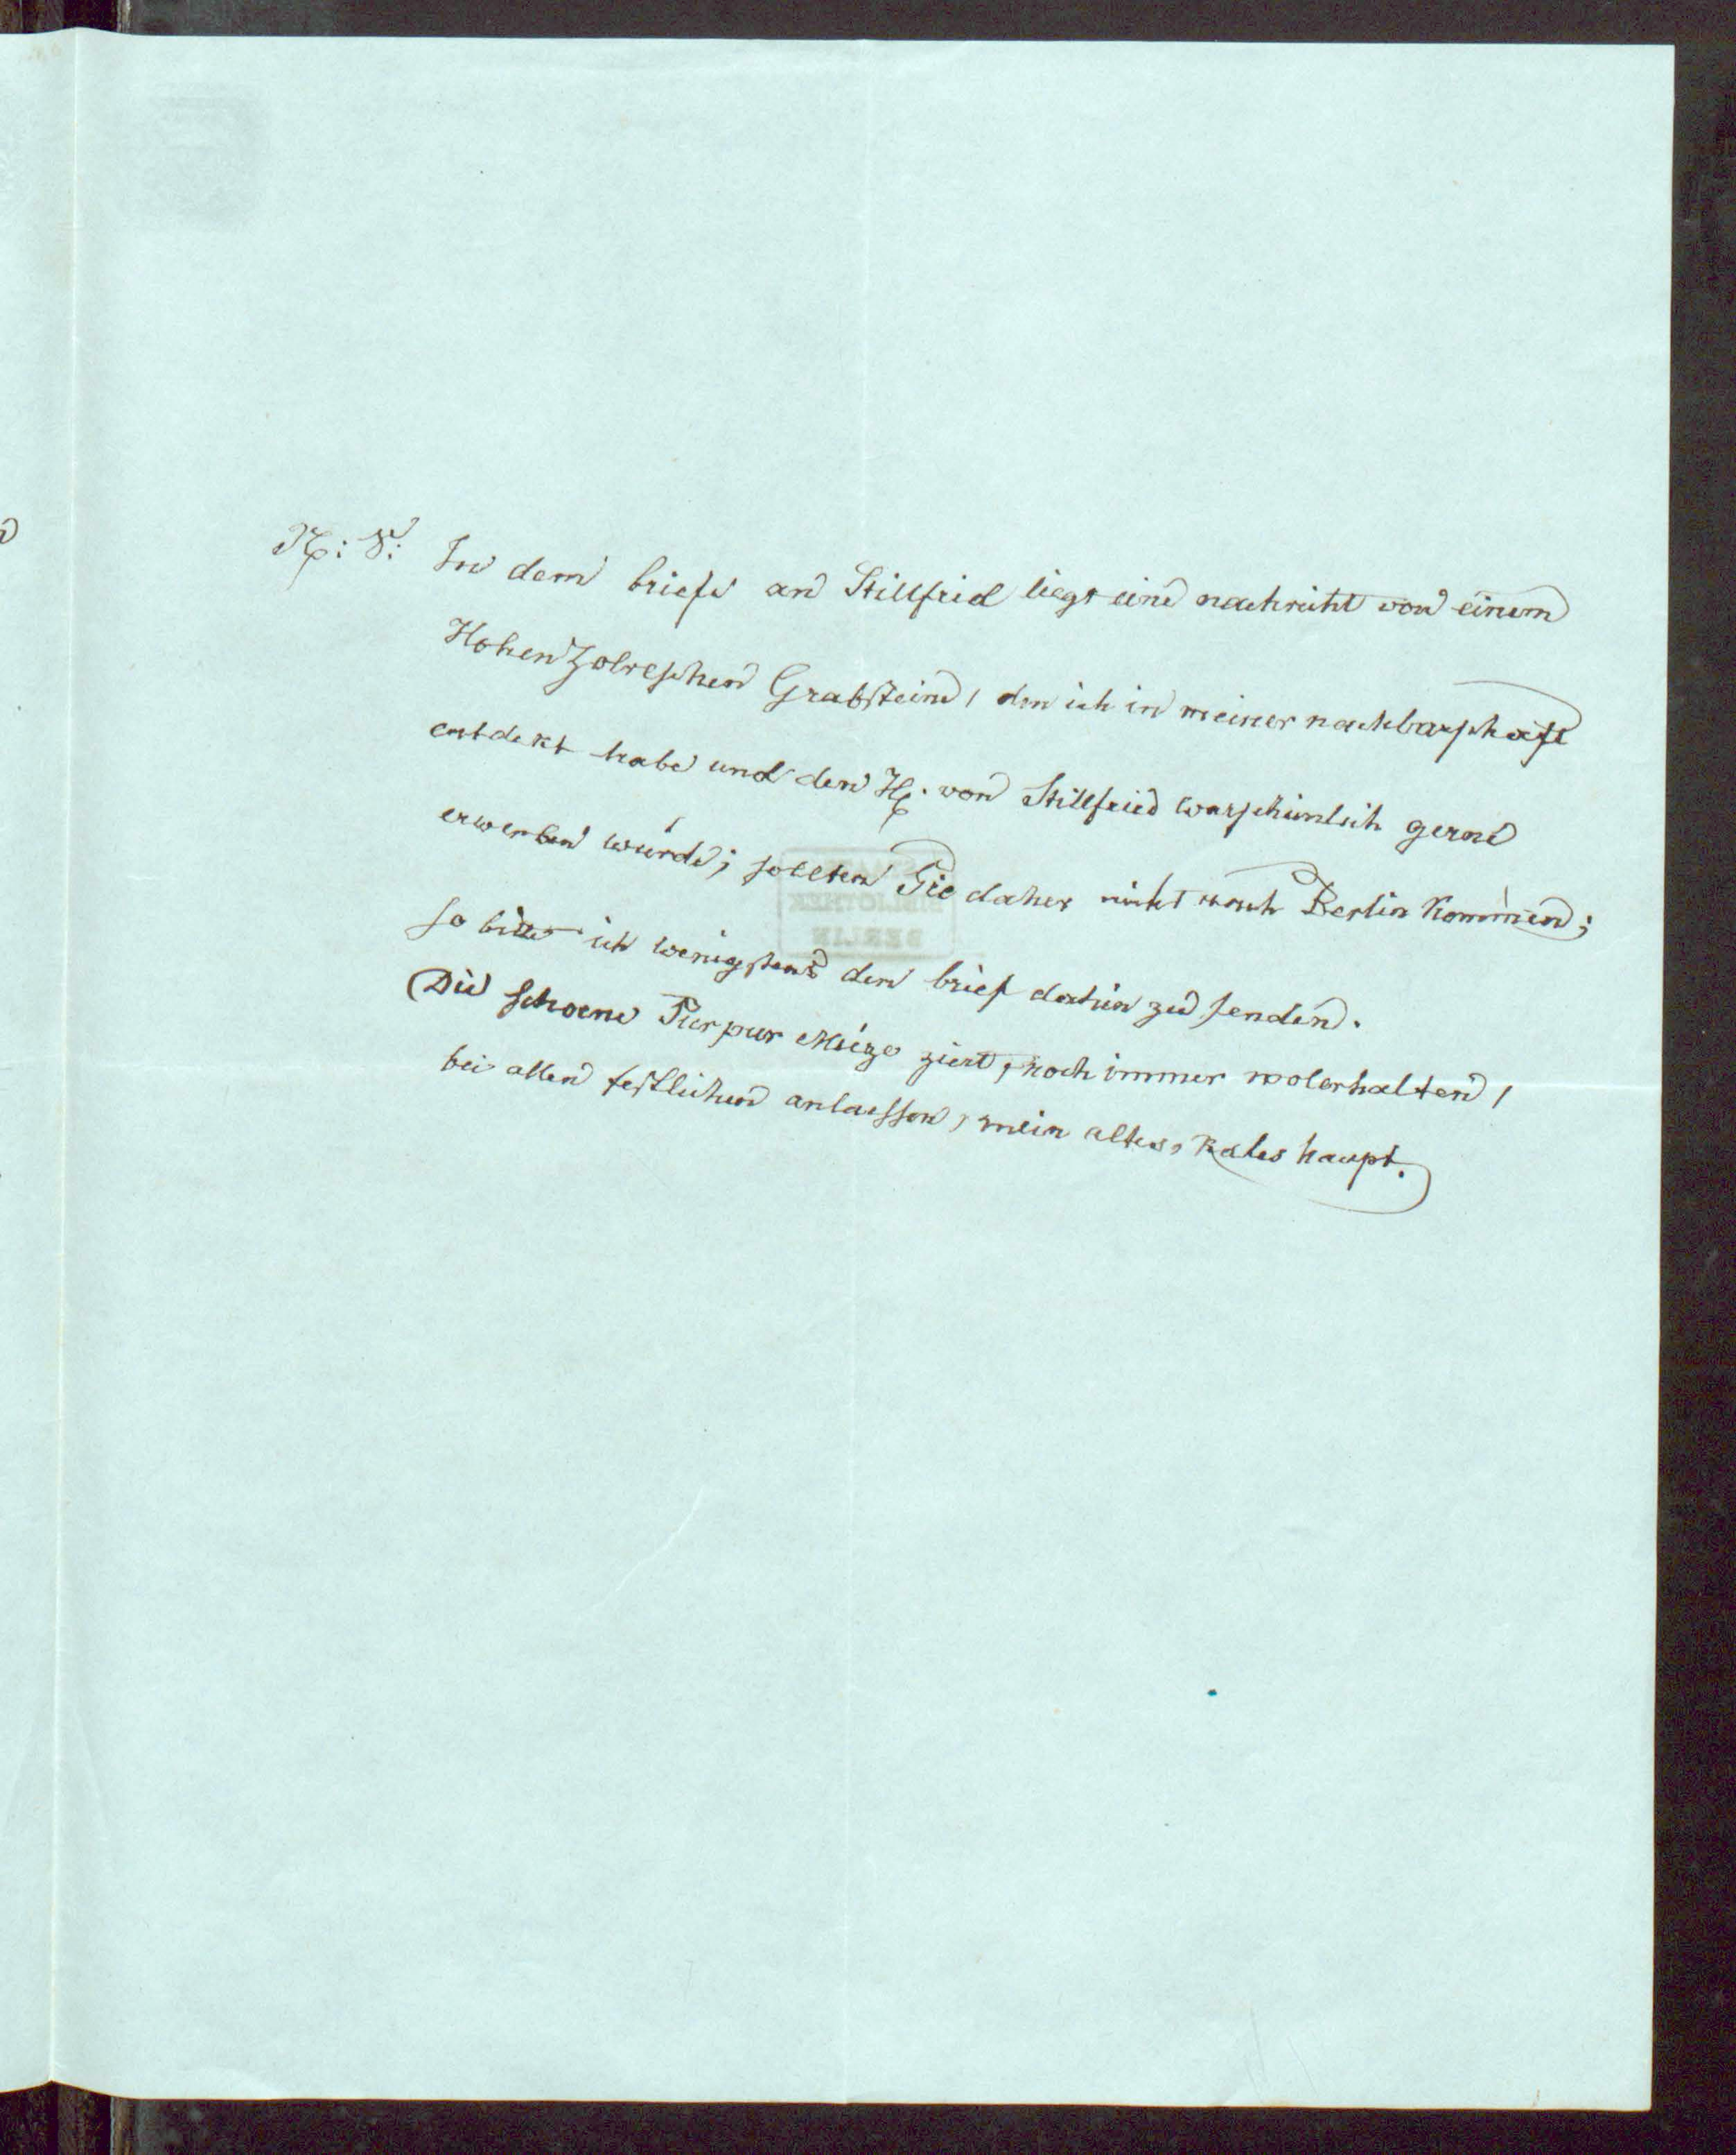 N: S: In dem briefe an Stillfrid liegt eine nachricht von einem
Hohenzolreschen Grabsteine, den ich in meiner nachbarschaft
entdekt habe und den H. von Stillfried warscheinlich gerne
erwerben würde; sollten Sie daher nicht nach Berlin kommen;
so bitte ich wenigstens den brief dahin zu senden.
Die schoene Purpur Müze ziert, noch immer wolerhalten,
bei allen festlichen anlaessen, mein altes, kales haupt.
STAATS
BIBLIOTHEK
BERLIN